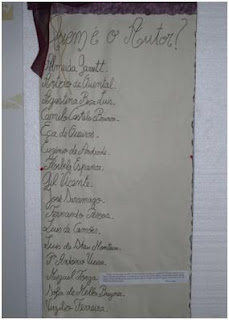 Quem é o Autor?
Almeida Garett.
Antero de Quental.
Agustina Bessa Luís.
Camilo Castelo Branco.
Eça de Queirós.
Eugénio de Andrade.
Florbela Espanca.
Gil Vicente.
José Saramago.
Fernando Pessoa.
Luís de Camões.
Luís de Sttau Monteiro.
P. António Vieira.
Miguel Torga.
Sofia de Mello Breyner.
Vergílio Ferreira.